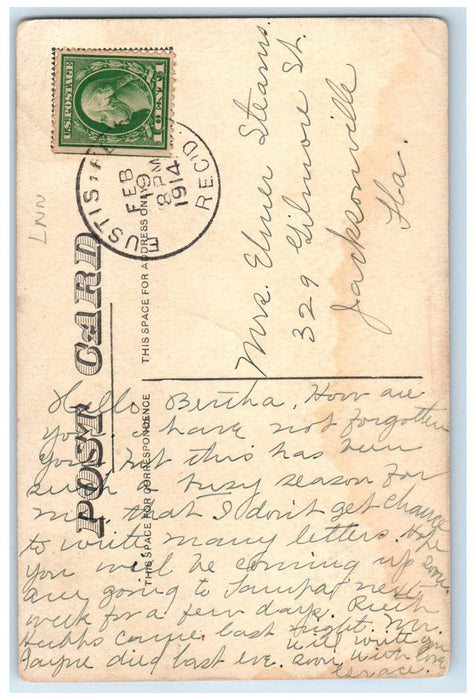 U.S. POSTAGE
1 CENT 1
EUSTIS, FLA.
FEB
19
8 PM
1914
REC'D.
LNN
POST CARD
THIS SPACE FOR ADDRESS ONLY
THIS SPACE FOR CORRESPONDENCE
Mrs. Elmer Stearns.
329 Gilmore St.
Jacksonville
Fla.
Hello Bertha, How are
you. I have not forgotten
you but this has been
such a busy season for
me that I don't get chance
to write many letters. Hope
you will be coming up soon.
are going to Tampa next
week for a few days. Ruth
Hubbs came last night. Mr.
Jayne died last eve. will write you
soon with love
Grace.